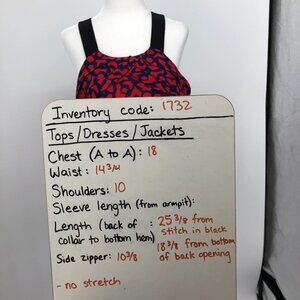 Inventory code: 1732
Tops/Dresses/Jackets
Chest (A to A): 18
Waist: 14 3/4
Shoulders: 10
Sleeve length (from armpit):
Length (back of collar to bottom hem): 25 3/8 from stitch in black
18 3/8 from bottom of back opening
Side zipper: 10 3/8
- no stretch